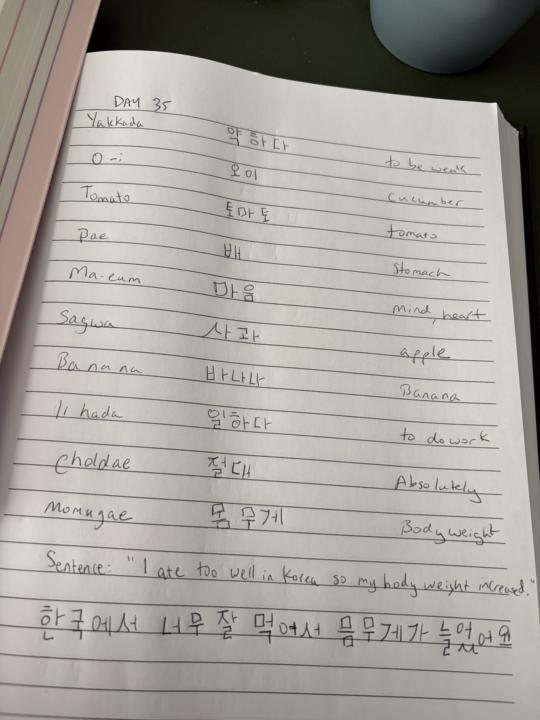 DAY 35
Yakkada 약하다 to be weak
O-i 오이 cucumber
Tomato 토마토 tomato
Bae 배 Stomach
Ma-eum 마음 mind, heart
Sagwa 사과 apple
Banana 바나나 Banana
Il hada 일하다 to do work
Choldae 절대 Absolutely
Momugae 몸무게 Body weight
Sentence: "I ate too well in Korea so my body weight increased."
한국에서 너무 잘 먹어서 몸무게가 늘었어요